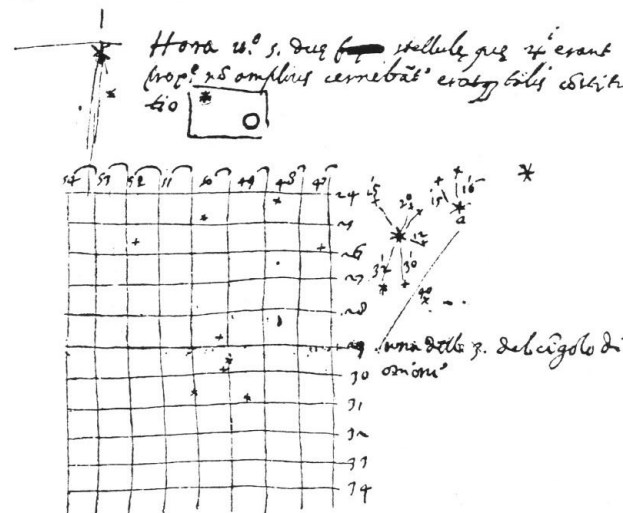 Hora n.º 5. due stellule que 4i erant
prope nō amplius cernebāt' erat talis cōstitu
tio
54 53 52 51 50 49 48 47
24
25
26
27
28
29
30
31
32
33
34
15 20 15' 16'
a
12
32 30
40
una delle 3. del cīgolo di
orione